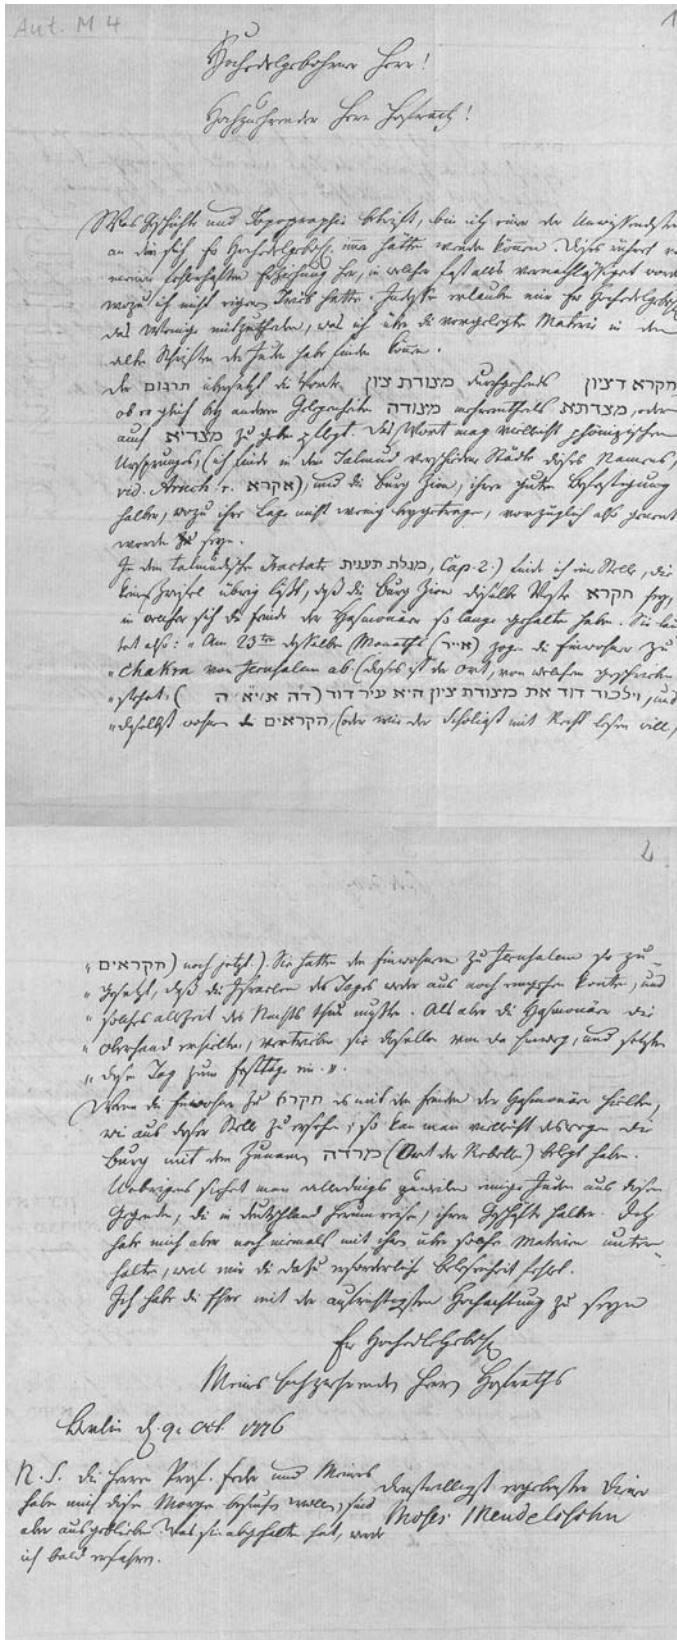 Aut. M 4
1
Hochedelgebohrner Herr!
Hochzuehrender Herr Hofrath!
Was Geschichte und Topographie betrift, bin ich einer der Unwissendsten
an die sich Ew Hochedelgeb. immer hätte wenden können. Dieses rührt
meiner fehlerhaften Erziehung her, in welcher fast alles vernachläßiget
wozu ich nicht eignen Trieb hatte. Indessen erlauben mir Ew Hochedelgeb
das Wenige mitzutheilen, was ich über die vorgelegte Materie in den
alten Schriften der Juden habe finden können.
Der תרגום übersetzt die Worte מצודת ציון durchgehends חקרא דציון
ob er gleich bey andern Gelegenheiten מצודה mehrentheils מצדתא, oder
auch מצדיא zu geben pflegt. Das Wort mag vielleicht phönizischen
Ursprungs, (ich finde in dem Talmud verschiedene Städte dieses Namens,
vid. Aruch r. אקרא), und die Burg Zion, ihrer guten Befestigung
halber, wozu ihre Lage nicht wenig beygetragen, vorzüglich also genennt
worden seyn.
In dem talmudischen Tractate מגלת תענית, Cap. 2.) finde ich eine Stelle, die
keinen Zweifel übrig läßt, daß die Burg Zion dieselbe Veste חקרא sey,
in welcher sich die Feinde der Hasmonäer so lange gehalten haben. Sie lau
tet also: „ Am 23ten desselben Monaths (אייר) zogen die Einwohner zu
„ Chakra von Jerusalem ab. (dieses ist der Ort, von welchem geschrieben
„ stehet: (וילכוד דוד את מצודת ציון היא עיר דוד (דה א׳ י״א ה, und
„ daselbst wohnen die הקראים, (oder wie der Scholiast mit Recht lesen will,
2
„ חקראים) noch jetzt.). Sie hatten den Einwohnern zu Jerusalem so zu-
„ gesetzt, daß die Israeliten des Tages weder aus noch eingehen konten, und
„ solches allezeit des Nachts thun mußten. Als aber die Hasmonäer die
„ Oberhand erhielten, vertrieben sie dieselben von da hinweg, und setzten
„ diesen Tag zum Festtage ein. „.
Wenn die Einwohner zu חקרא es mit den Feinden der Hasmonäer hielten,
wie aus dieser Stelle zu ersehen, so kan man vielleicht deswegen die
Burg mit dem Zunamen מרדה (Ort der Rebellen) belegt haben.
Uebrigens siehet man allerdings zuweilen einige Juden aus diesen
Gegenden, die in Deutschland herumreisen, ihrer Geschäfte halber. Ich
habe mich aber noch niemals mit ihnen über solche Materien unter-
halten, weil mir die dazu erforderliche Belesenheit fehlet.
Ich habe die Ehre mit der aufrichtigsten Hochachtung zu seyn
Ew Hochedelgeb
Meines hochzuehrenden Herrn Hofraths
Berlin d. 9. Oct. 1776
dienstwilligst ergebenster Diener
Moses Mendelssohn
N. S. Die Herren Prof. Feder und Meiners
haben mich diesen Morgen besuchen wollen, sind
aber ausgeblieben. Was sie abgehalten hat, werde
ich bald erfahren.